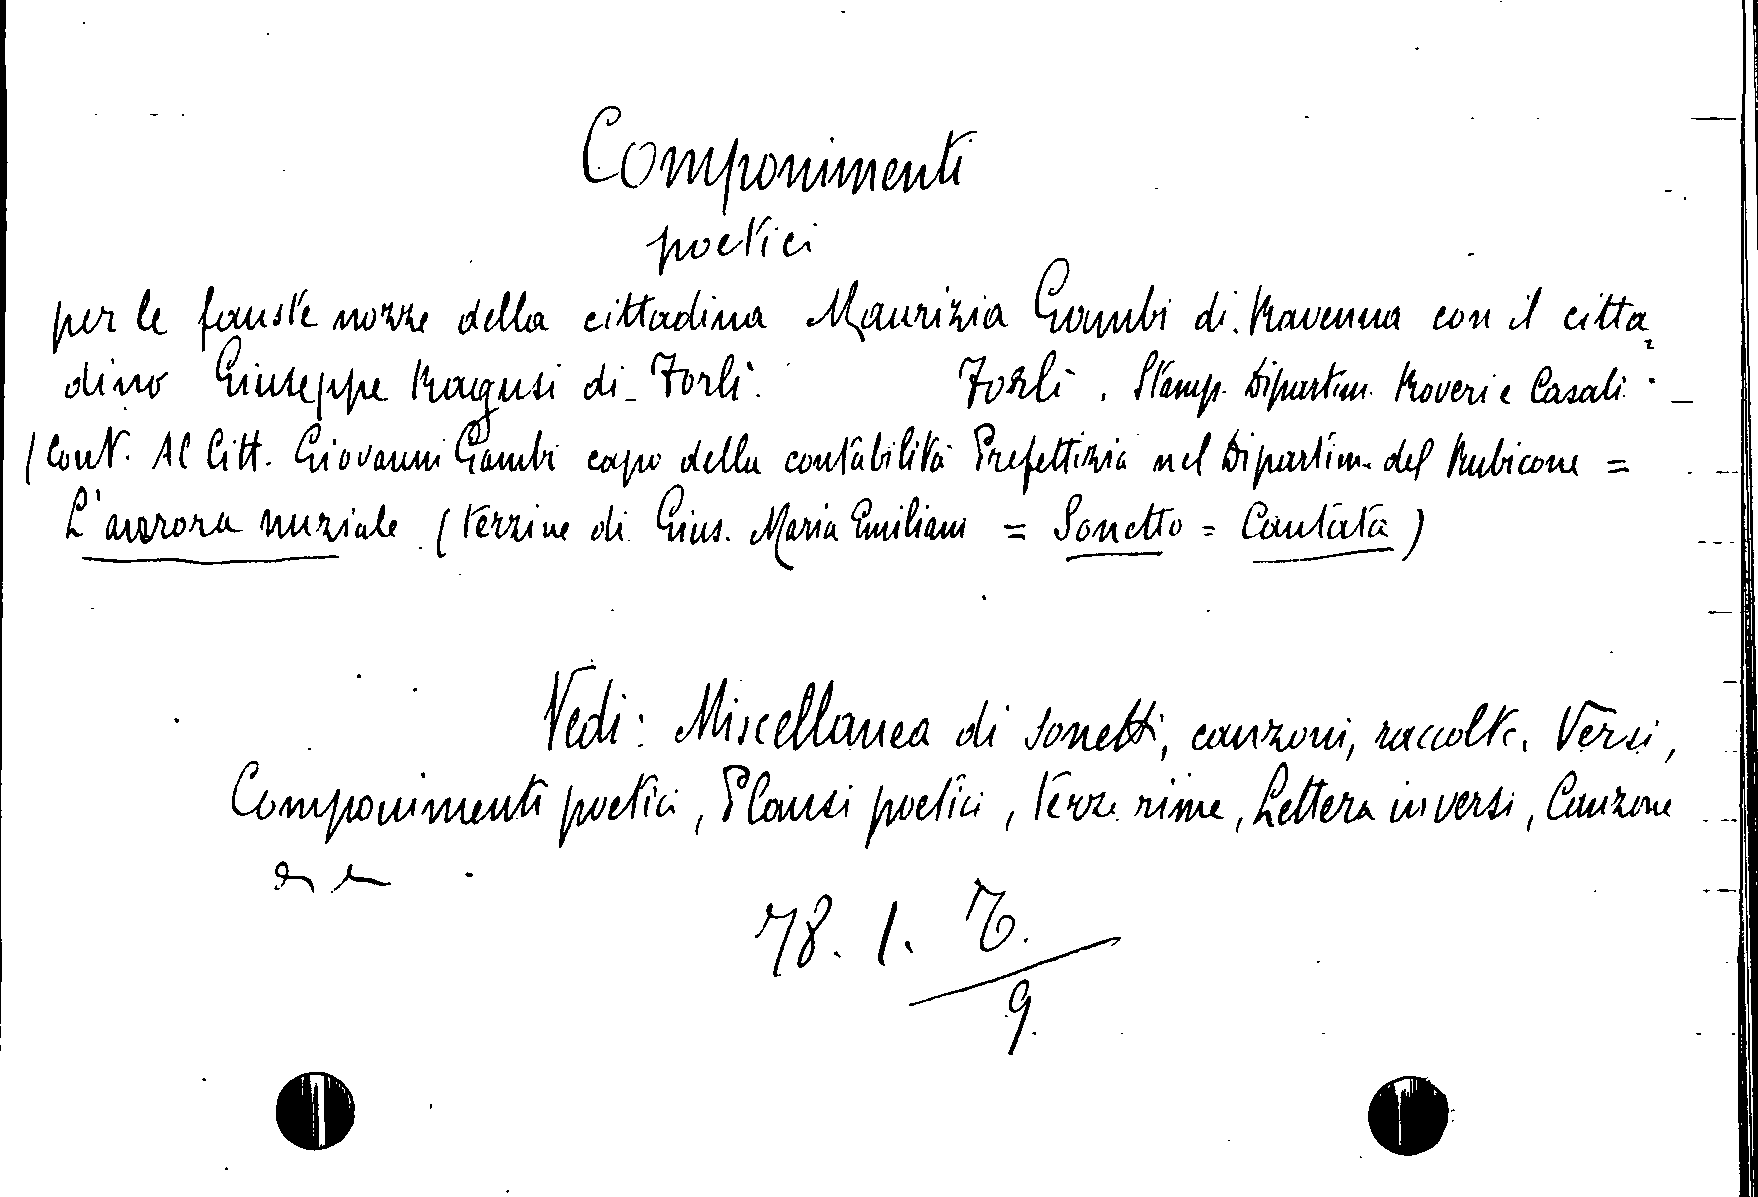 Componimenti
poetici
per le fauste nozze della cittadina Maurizia Gambi di Ravenna con il citta
dino Giuseppe Ragusi di Forlì. Forlì. Stamp. Dipartim. Roveri e Casali.
(Cont. Al Citt. Giovanni Gambi capo della contabilità Prefettizia nel Dipartim. del Rubicone =
L'aurora nuziale (terzine di Gius. Maria Emiliani = Sonetto = Cantata)
Vedi: Miscellanea di sonetti, canzoni, raccolte. Versi,
Componimenti poetici, Plausi poetici, Terze rime, Lettera in versi, Canzone
78. 1. 
9.